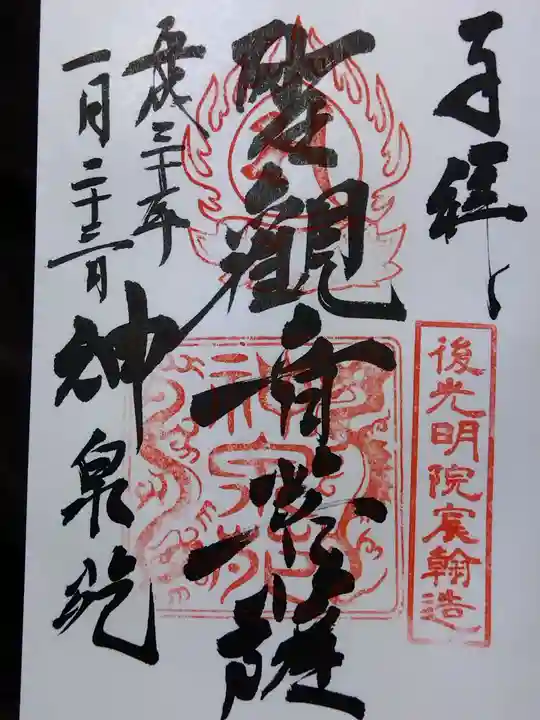 奉拝
後光明院宸翰造
聖観音菩薩
神泉苑
平成三十年
一月二十三日
神泉苑